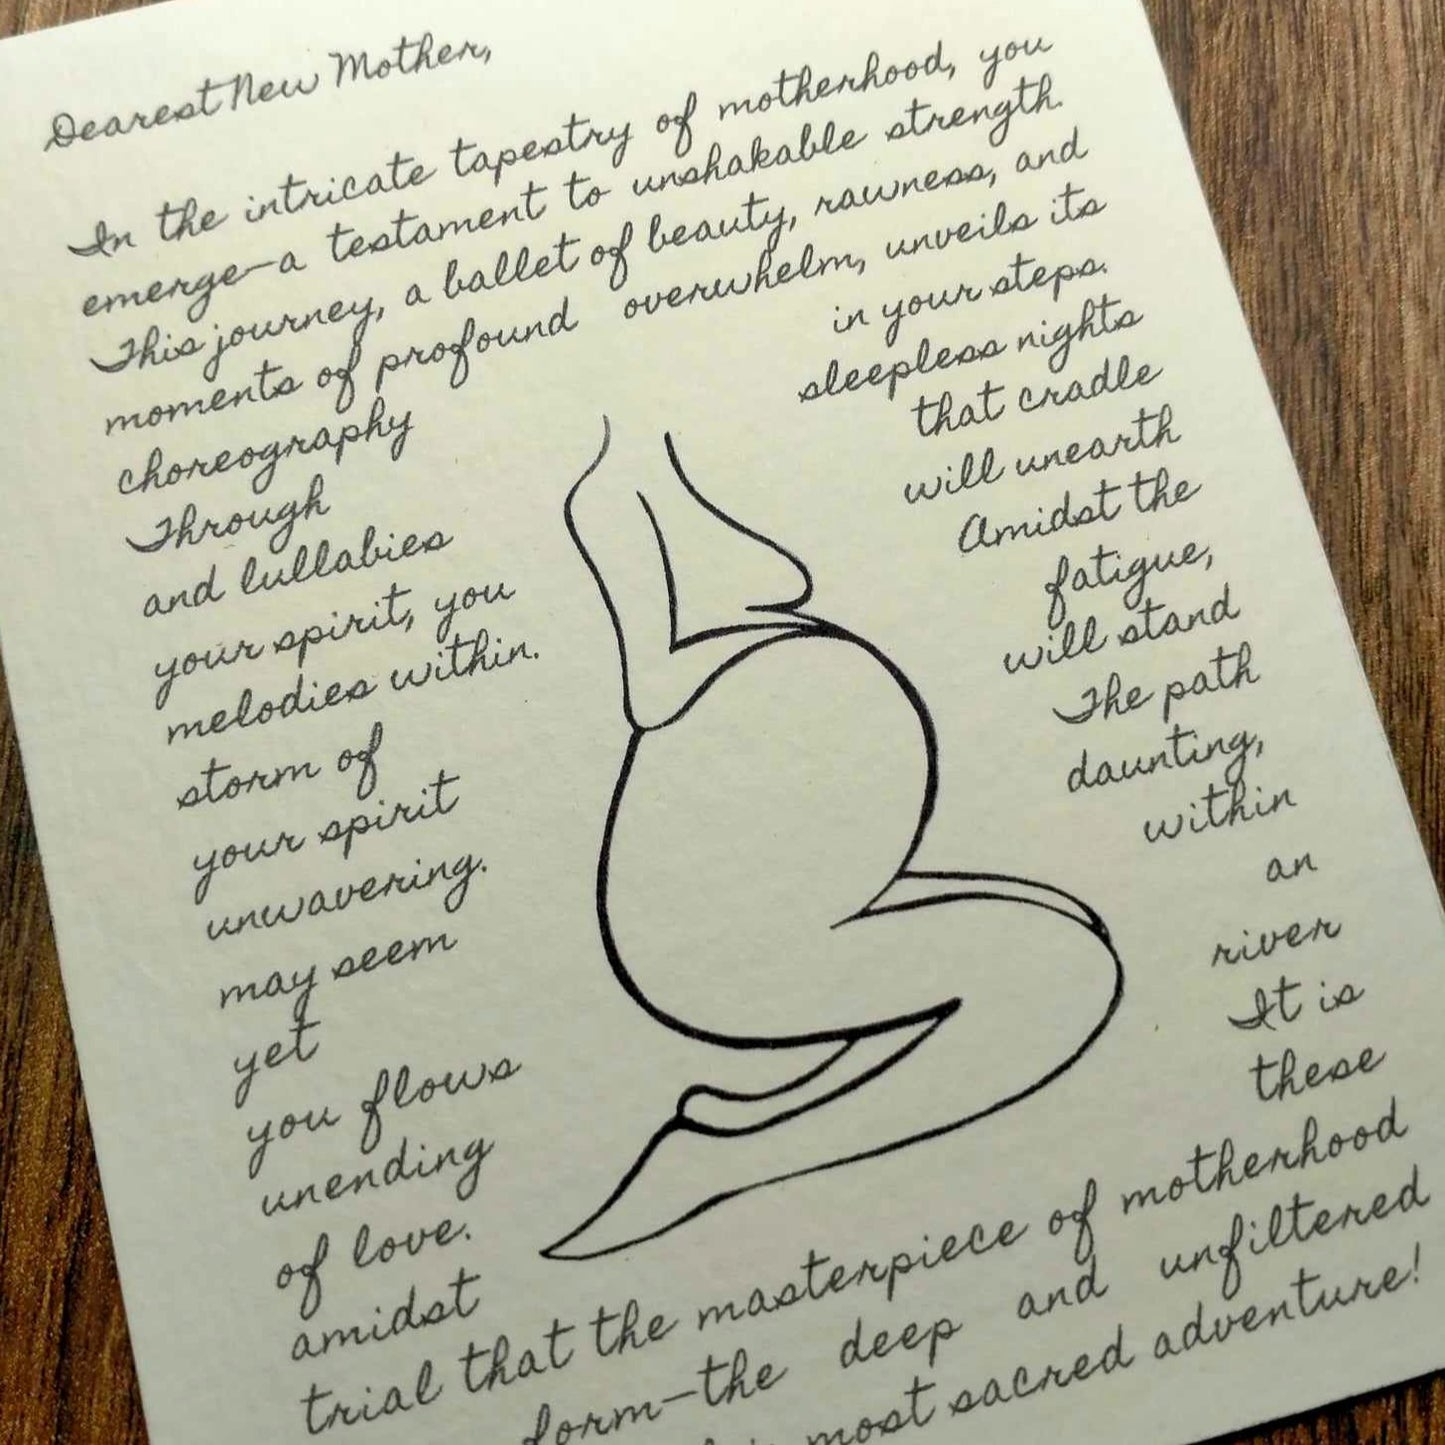 Dearest New Mother,
In the intricate tapestry of motherhood, you
emerge—a testament to unshakable strength.
This journey, a ballet of beauty, rawness, and
moments of profound overwhelm, unveils its
choreography in your steps.
Through sleepless nights
and lullabies that cradle
your spirit, you will unearth
melodies within. Amidst the
storm of fatigue,
your spirit will stand
unwavering. The path
may seem daunting,
yet within
you flows an
unending river
of love. It is
amidst these
trial that the masterpiece of motherhood
form—the deep and unfiltered
most sacred adventure!